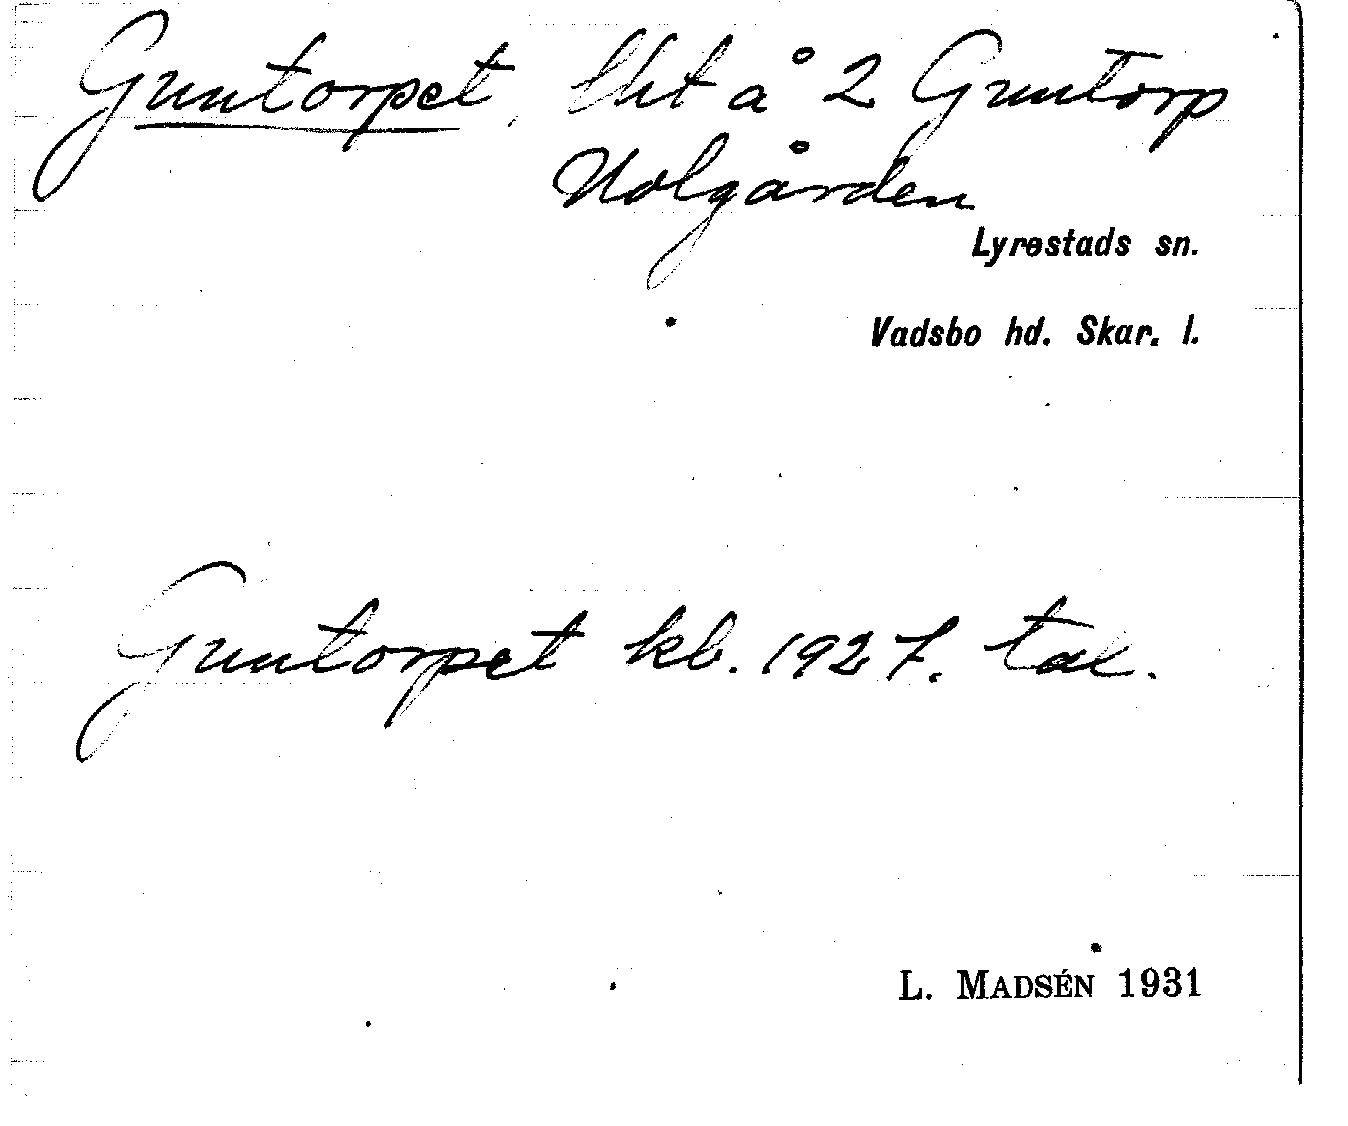 Guntorpet, lht å 2 Guntorp
Nolgården
Lyrestads sn.
Vadsbo hd. Skar. l.
Guntorpet kb. 1927. tal.
L. MADSÉN 1931